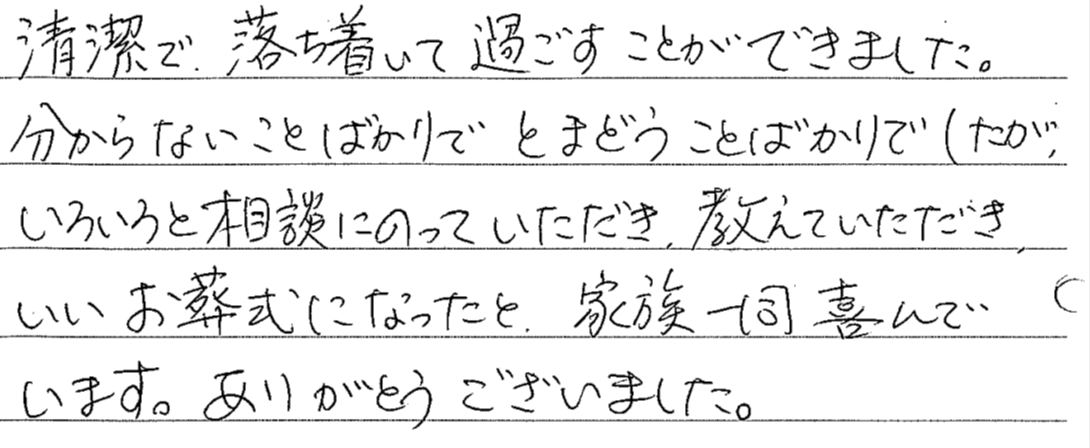 清潔で、落ち着いて過ごすことができました。
分からないことばかりでとまどうことばかりでしたが、
いろいろと相談にのっていただき、教えていただき、
いいお葬式になったと、家族一同喜んで
います。ありがとうございました。